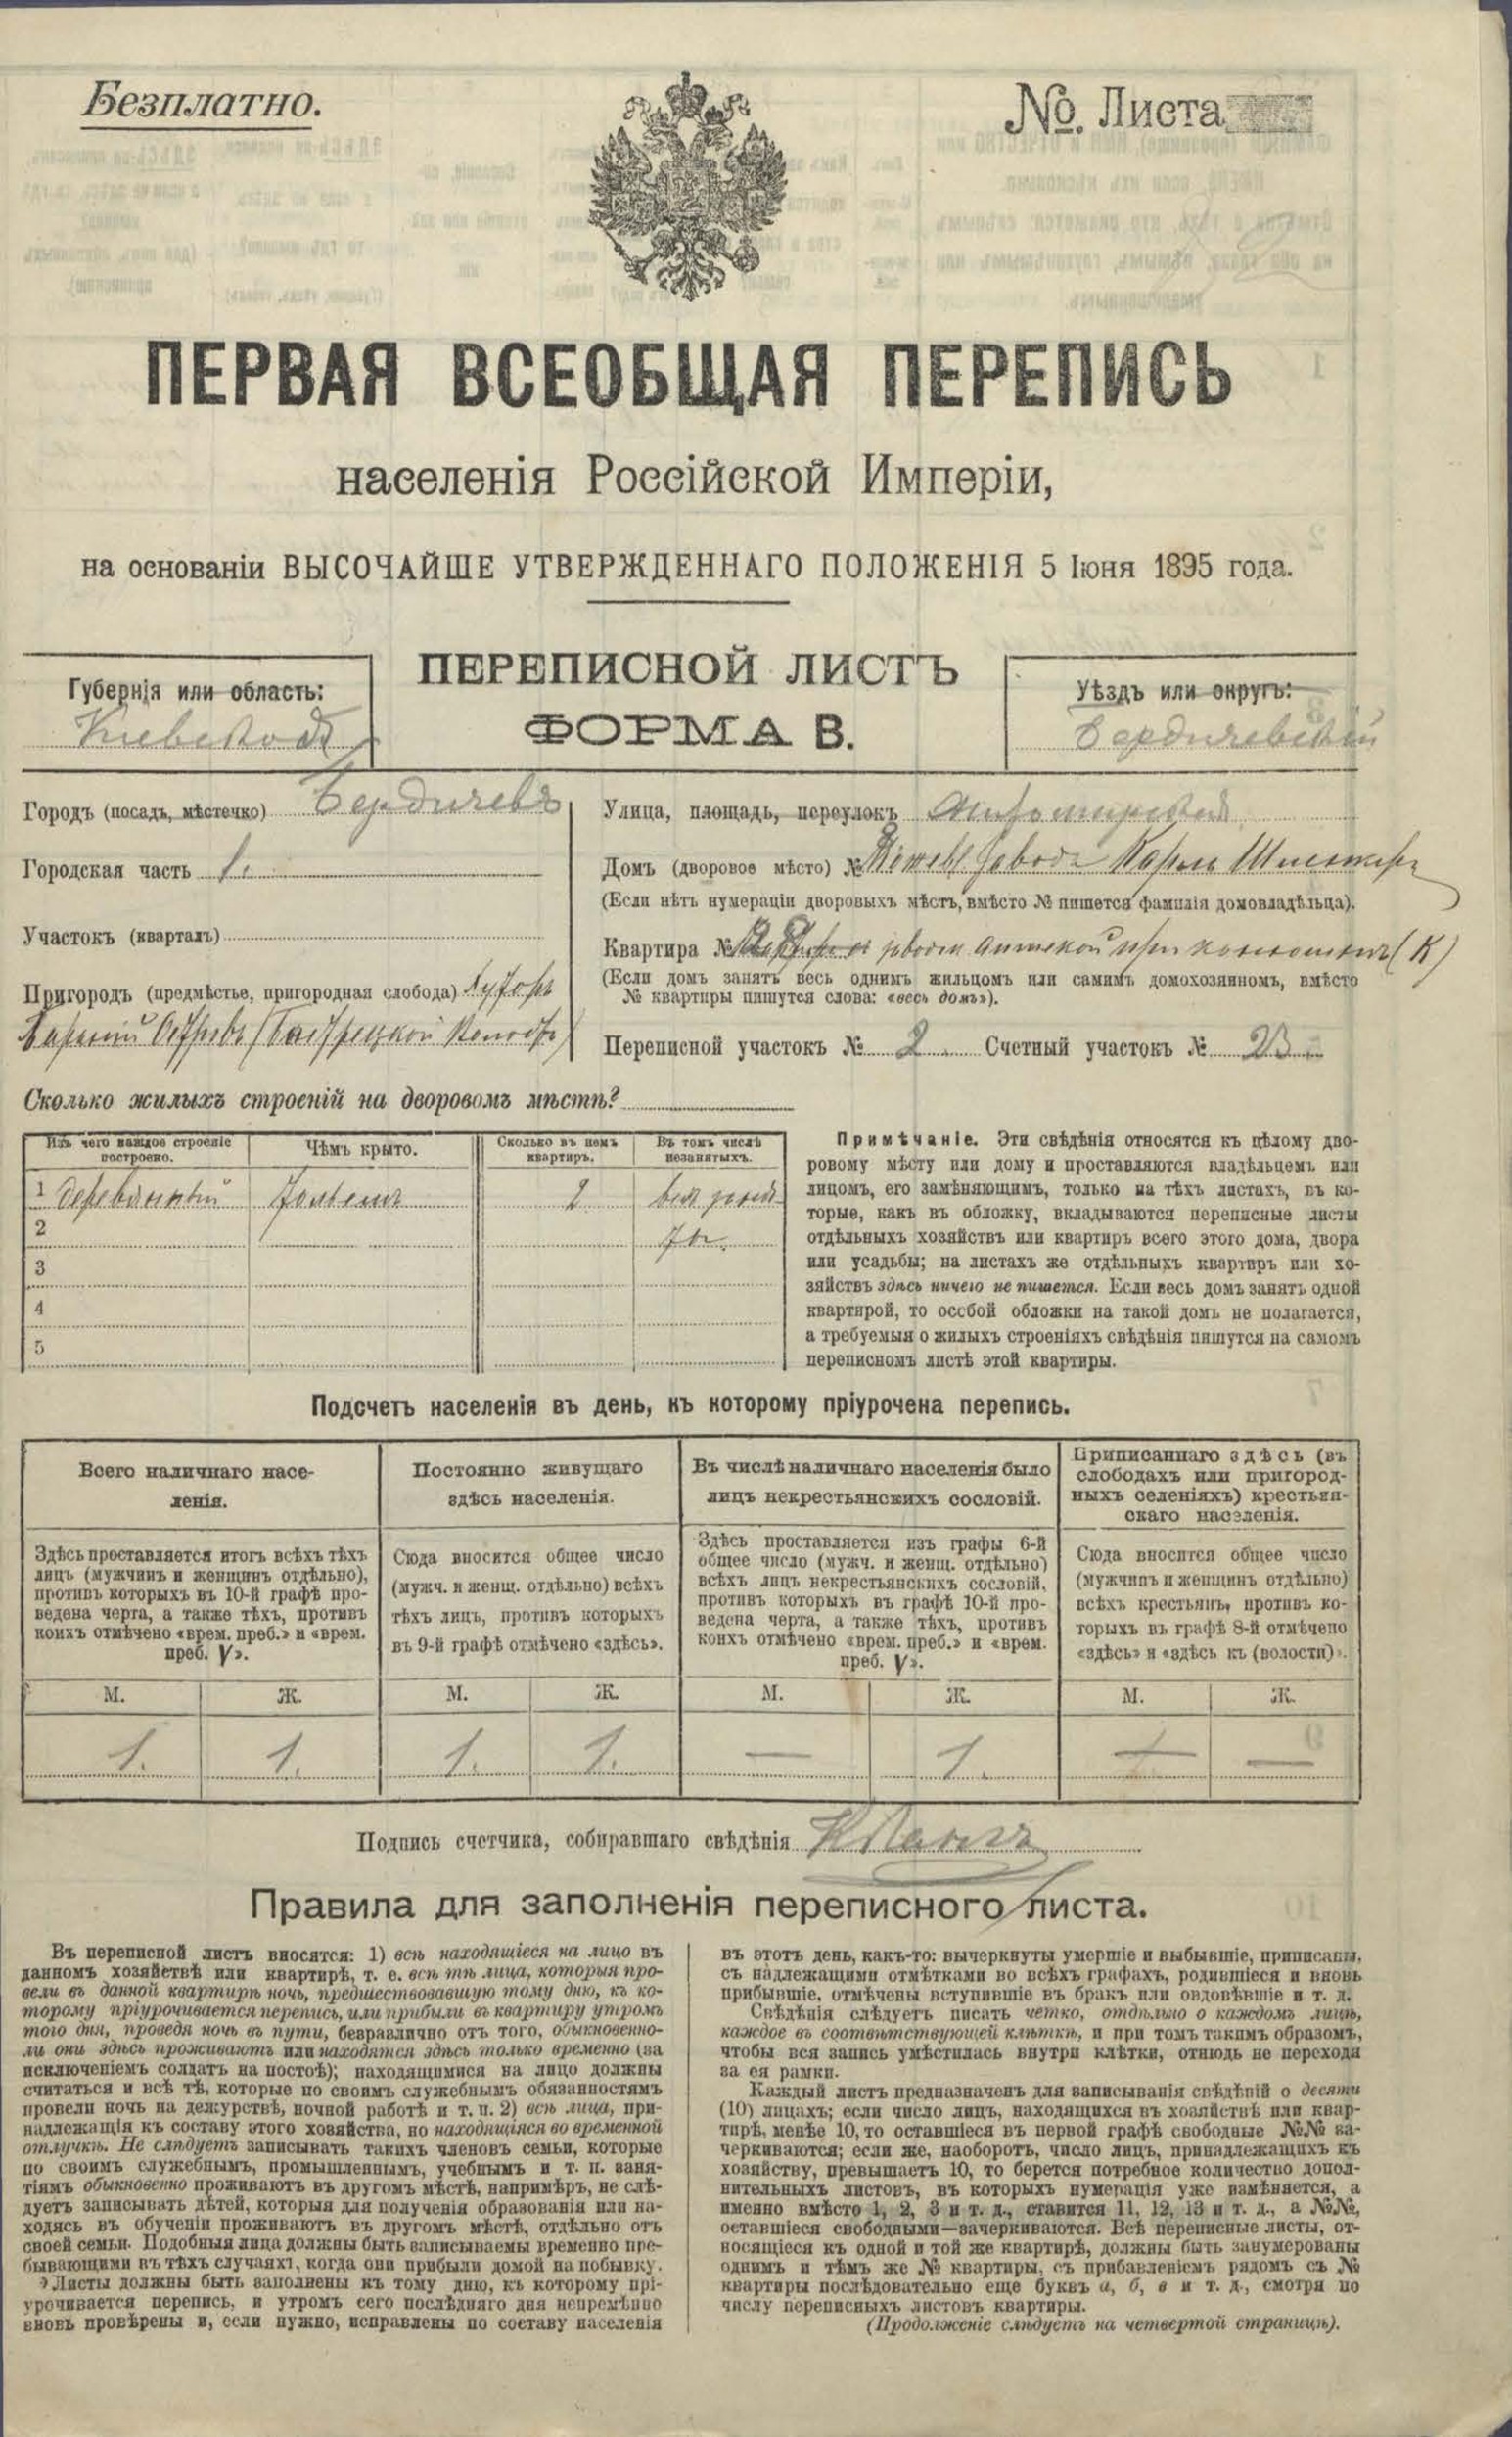 Безплатно.
№. Листа
ПЕРВАЯ ВСЕОБЩАЯ ПЕРЕПИСЬ
населенія Россійской Имперіи,
на основаніи ВЫСОЧАЙШЕ УТВЕРЖДЕННАГО ПОЛОЖЕНІЯ 5 Іюня 1895 года.
ПЕРЕПИСНОЙ ЛИСТЪ
ФОРМА В.
Губернія или область:
Кіевской
Уѣздъ или округъ:
Бердичевскій
Городъ (посадъ, мѣстечко) Бердичевъ
Городская часть 1.
Участокъ (кварталъ)
Пригородъ (предмѣстье, пригородная слобода) Хуторъ
Улица, площадь, переулокъ Житомирская
Домъ (дворовое мѣсто) № Кожев. заводъ Карла Шленкера
(Если нѣтъ нумераціи дворовыхъ мѣстъ, вмѣсто № пишется фамилія домовладѣльца).
Квартира №
(Если домъ занятъ весь однимъ жильцомъ или самимъ домохозяиномъ, вмѣсто
№ квартиры пишутся слова: «весь домъ»).
Переписной участокъ № 2. Счетный участокъ № 23.
Сколько жилыхъ строеній на дворовомъ мѣстѣ?
Изъ чего каждое строеніе построено.
Чѣмъ крыто.
Сколько въ немъ квартиръ.
Въ томъ числѣ незанятыхъ.
1 деревянный 2
2
3
4
5
Примѣчаніе. Эти свѣдѣнія относятся къ цѣлому дво-
ровому мѣсту или дому и проставляются владѣльцемъ или
лицомъ, его замѣняющимъ, только на тѣхъ листахъ, въ ко-
торые, какъ въ обложку, вкладываются переписные листы
отдѣльныхъ хозяйствъ или квартиръ всего этого дома, двора
или усадьбы; на листахъ же отдѣльныхъ квартиръ или хо-
зяйствъ здѣсь ничего не пишется. Если весь домъ занятъ одной
квартирой, то особой обложки на такой домъ не полагается,
а требуемыя о жилыхъ строеніяхъ свѣдѣнія пишутся на самомъ
переписномъ листѣ этой квартиры.
Подсчетъ населенія въ день, къ которому пріурочена перепись.
Всего наличнаго насе-
ленія.
Постоянно живущаго
здѣсь населенія.
Въ числѣ наличнаго населенія было
лицъ некрестьянскихъ сословій.
Приписаннаго здѣсь (въ
слободахъ или пригород-
ныхъ селеніяхъ) крестьян-
скаго населенія.
Здѣсь проставляется итогъ всѣхъ тѣхъ
лицъ (мужчинъ и женщинъ отдѣльно),
противъ которыхъ въ 10-й графѣ про-
ведена черта, а также тѣхъ, противъ
коихъ отмѣчено «врем. преб.» и «врем.
преб. V».
Сюда вносится общее число
(мужч. и женщ. отдѣльно) всѣхъ
тѣхъ лицъ, противъ которыхъ
въ 9-й графѣ отмѣчено «здѣсь».
Здѣсь проставляется изъ графы 6-й
общее число (мужч. и женщ. отдѣльно)
всѣхъ лицъ некрестьянскихъ сословій,
противъ которыхъ въ графѣ 10-й про-
ведена черта, а также тѣхъ, противъ
коихъ отмѣчено «врем. преб.» и «врем.
преб. V».
Сюда вносится общее число
(мужчинъ и женщинъ отдѣльно)
всѣхъ крестьянъ, противъ ко-
торыхъ въ графѣ 8-й отмѣчено
«здѣсь» и «здѣсь къ (волости)».
М. Ж. М. Ж. М. Ж. М. Ж.
1. 1. 1. 1. — 1. — —
Подпись счетчика, собиравшаго свѣдѣнія
Правила для заполненія переписного листа.
Въ переписной листъ вносятся: 1) всѣ находящіеся на лицо въ
данномъ хозяйствѣ или квартирѣ, т. е. всѣ тѣ лица, которыя про-
вели въ данной квартирѣ ночь, предшествовавшую тому дню, къ ко-
торому пріурочивается перепись, или прибыли въ квартиру утромъ
того дня, проведя ночь въ пути, безразлично отъ того, обыкновенно-
ли они здѣсь проживаютъ или находятся здѣсь только временно (за
исключеніемъ солдатъ на постоѣ); находящимися на лицо должны
считаться и всѣ тѣ, которые по своимъ служебнымъ обязанностямъ
провели ночь на дежурствѣ, ночной работѣ и т. п. 2) всѣ лица, при-
надлежащія къ составу этого хозяйства, но находящіяся во временной
отлучкѣ. Не слѣдуетъ записывать такихъ членовъ семьи, которые
по своимъ служебнымъ, промышленнымъ, учебнымъ и т. п. заня-
тіямъ обыкновенно проживаютъ въ другомъ мѣстѣ, напримѣръ, не слѣ-
дуетъ записывать дѣтей, которыя для полученія образованія или на-
ходясь въ обученіи проживаютъ въ другомъ мѣстѣ, отдѣльно отъ
своей семьи. Подобныя лица должны быть записываемы временно пре-
бывающими въ тѣхъ случаяхъ, когда они прибыли домой на побывку.
Листы должны быть заполнены къ тому дню, къ которому прі-
урочивается перепись, и утромъ сего послѣдняго дня непремѣнно
вновь провѣрены и, если нужно, исправлены по составу населенія
въ этотъ день, какъ-то: вычеркнуты умершіе и выбывшіе, приписаны,
съ надлежащими отмѣтками во всѣхъ графахъ, родившіеся и вновь
прибывшіе, отмѣчены вступившіе въ бракъ или овдовѣвшіе и т. д.
Свѣдѣнія слѣдуетъ писать четко, отдѣльно о каждомъ лицѣ,
каждое въ соотвѣтствующей клѣткѣ, и при томъ такимъ образомъ,
чтобы вся запись умѣстилась внутри клѣтки, отнюдь не переходя
за ея рамки.
Каждый листъ предназначенъ для записыванія свѣдѣній о десяти
(10) лицахъ; если число лицъ, находящихся въ хозяйствѣ или квар-
тирѣ, менѣе 10, то оставшіеся въ первой графѣ свободные №№ за-
черкиваются; если же, наоборотъ, число лицъ, принадлежащихъ къ
хозяйству, превышаетъ 10, то берется потребное количество допол-
нительныхъ листовъ, въ которыхъ нумерація уже измѣняется, а
именно вмѣсто 1, 2, 3 и т. д., ставится 11, 12, 13 и т. д., а №№,
оставшіеся свободными—зачеркиваются. Всѣ переписные листы, от-
носящіеся къ одной и той же квартирѣ, должны быть занумерованы
однимъ и тѣмъ же № квартиры, съ прибавленіемъ рядомъ съ №
квартиры послѣдовательно еще буквъ а, б, в и т. д., смотря по
числу переписныхъ листовъ квартиры.
(Продолженіе слѣдуетъ на четвертой страницѣ).